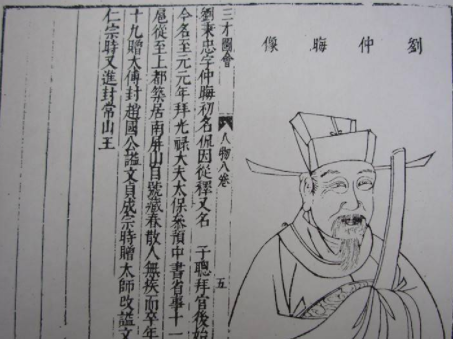 劉仲晦像
三才圖會 人物八卷 五
劉秉忠字仲晦初名侃因從釋又名 子聰拜官後始
今名至元元年拜光祿大夫太保叅預中書省事十一
扈從至上都築居南屏山自號藏春散人無疾而卒年
十九贈太傅封趙國公謚文貞成宗時贈太師改謚文
仁宗時又進封常山王